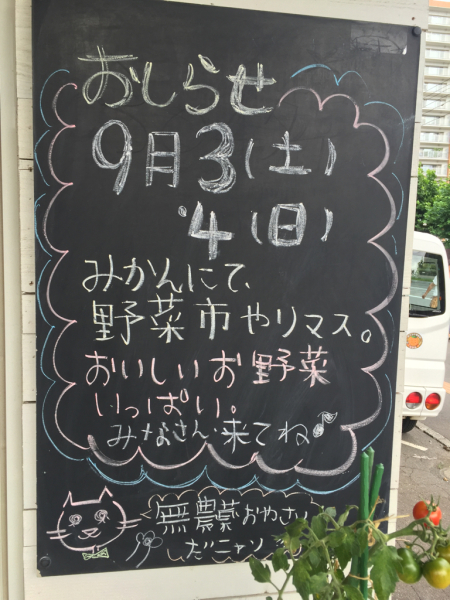 おしらせ
9月3(土)
4(日)
みかんにて、
野菜市やリマス。
おいしいお野菜
いっぱい。
みなさん来てね♪
無農薬おやさい
だニャン